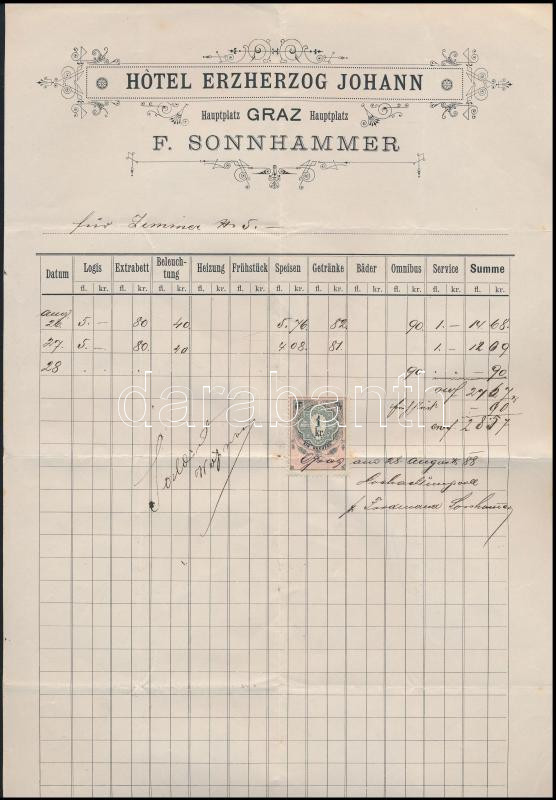 HÒTEL ERZHERZOG JOHANN
Hauptplatz GRAZ Hauptplatz
F. SONNHAMMER
für Zimmer No 5.–
Datum Logis Extrabett Beleuchtung Heizung Frühstück Speisen Getränke Bäder Omnibus Service Summe
fl. kr. fl. kr. fl. kr. fl. kr. fl. kr. fl. kr. fl. kr. fl. kr. fl. kr. fl. kr. fl. kr.
Aug
26. 5.– 80 40. 5.76. 82. 90. 1.– 14 68.
27. 5.– 80. 40 4 08. 81. 1.– 12 09
28 . . . 90 . – 90
27 67
Frühstück – 90
28 57
1 kr.
Graz am 28 August 88
Hochachtungsvoll
Ferdinand Sonnhammer
darabanth